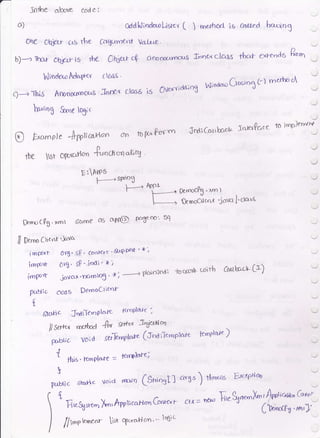 In the above code:
a) addWindowListener ( ) method is called having
one object as the argument value.
b) → That object is the Object of anonymous Inner class that extends from
WindowAdapter class.
c) → This Anonymous Inner class is Overriding Window Closing (-) method
having Some logic
Example Application on to perform JndiCallback Interface to implement
the list operation functionality.
E:\Apps
→ spring
→ App2
→ DemoCfg.xml
→ DemoClient .java | .class
DemoCfg.xml same as app page no: 59
// Demo Client .Java
import org.sf.context.support.*;
import org.sf.jndi.*;
import javax.naming.*; → plainJndi to work with Callback (I)
public class DemoClient
{
static JndiTemplate template;
// Setter method for Setter Injection
public void setTemplate (JndiTemplate template)
{
this.template = template;
}
public static void main (String[] args) throws Exception
{
FileSystemXmlApplicationContext ctx = new FileSystemXmlApplicationContext
("DemoCfg.xml");
// Implement list operation... logic